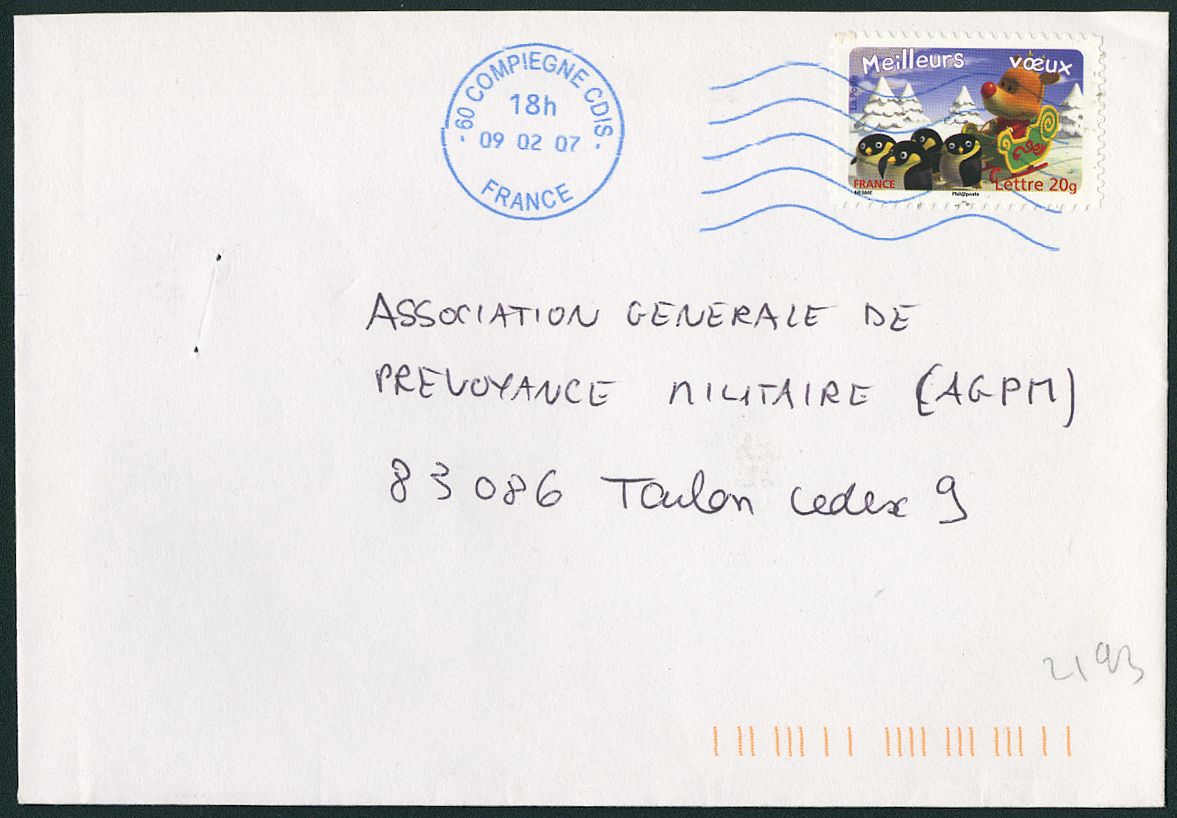 60 COMPIEGNE CDIS
18h
09 02 07
FRANCE
Meilleurs vœux
La Poste
FRANCE
Lettre 20g
Phil@poste
ASSOCIATION GENERALE DE
PREVOYANCE MILITAIRE (AGPM)
83086 Toulon cedex 9
2193